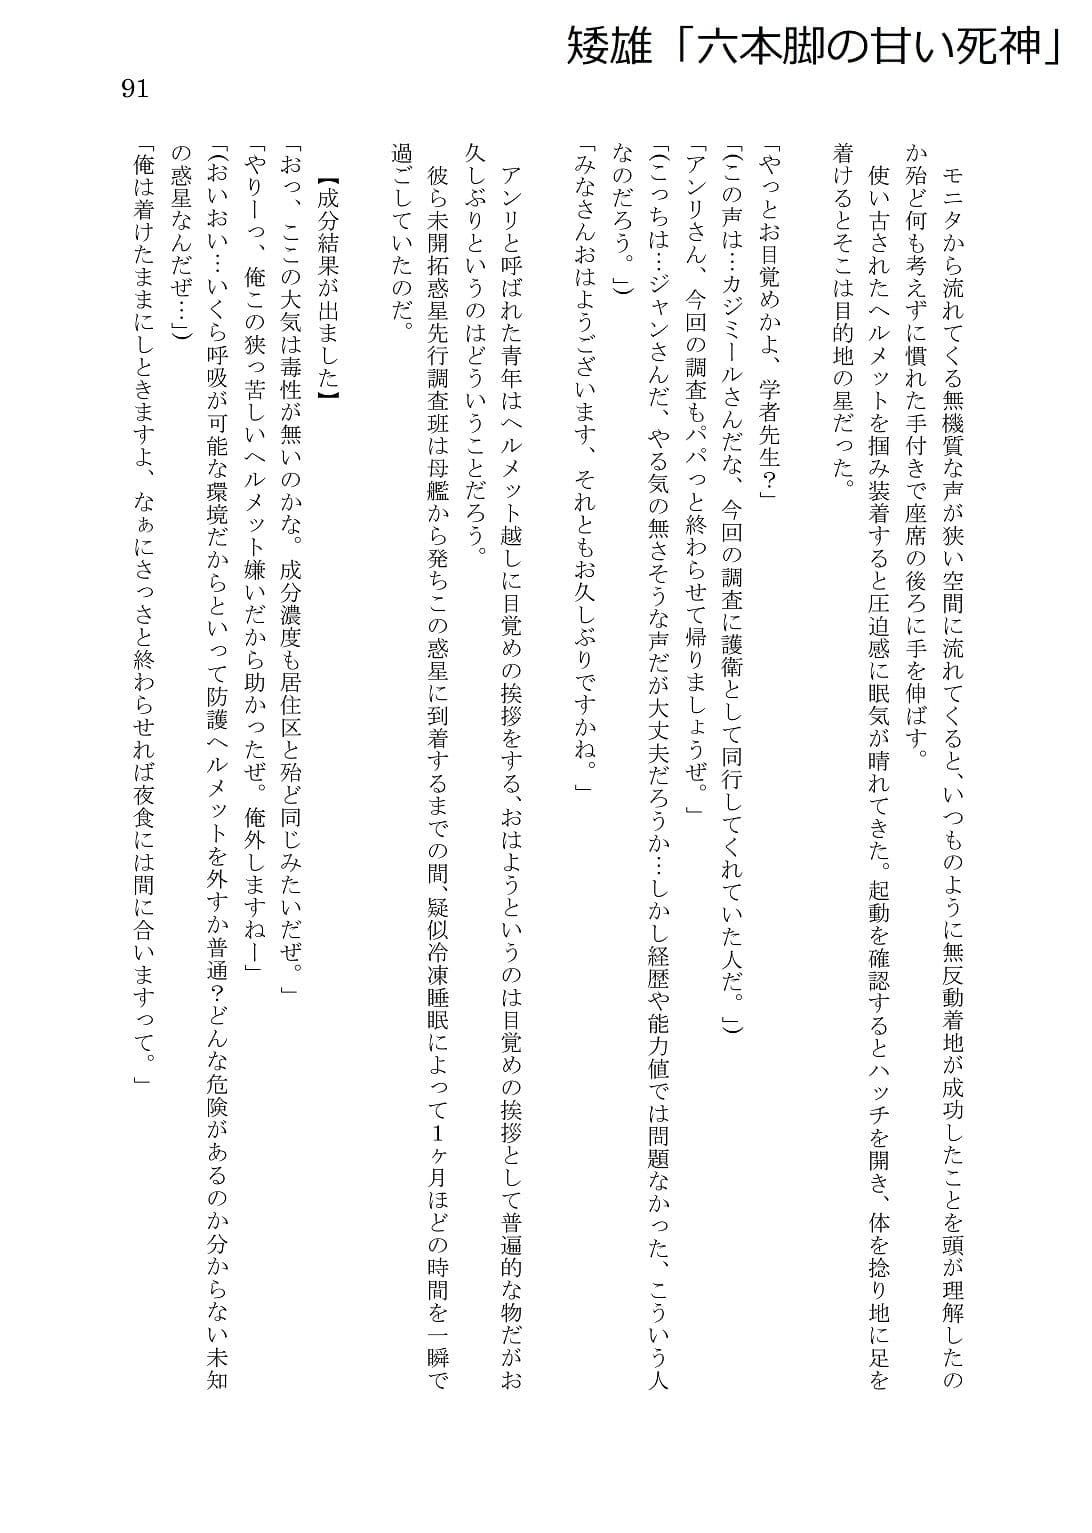 矮雄「六本脚の甘い死神」
91
モニタから流れてくる無機質な声が狭い空間に流れてくると、いつものように無反動着地が成功したことを頭が理解したの
か殆ど何も考えずに慣れた手付きで座席の後ろに手を伸ばす。
使い古されたヘルメットを掴み装着すると圧迫感に眠気が晴れてきた。起動を確認するとハッチを開き、体を捻り地に足を
着けるとそこは目的地の星だった。
「やっとお目覚めかよ、学者先生？」
「(この声は…カジミールさんだな、今回の調査に護衛として同行してくれていた人だ。)」
「アンリさん、今回の調査もパパっと終わらせて帰りましょうぜ。」
「(こっちは…ジャンさんだ、やる気の無さそうな声だが大丈夫だろうか…しかし経歴や能力値では問題なかった、こういう人
なのだろう。)」
「みなさんおはようございます、それともお久しぶりですかね。」
アンリと呼ばれた青年はヘルメット越しに目覚めの挨拶をする、おはようというのは目覚めの挨拶として普遍的な物だがお
久しぶりというのはどういうことだろう。
彼ら未開拓惑星先行調査班は母艦から発ちこの惑星に到着するまでの間、疑似冷凍睡眠によって１ヶ月ほどの時間を一瞬で
過ごしていたのだ。
【成分結果が出ました】
「おっ、ここの大気は毒性が無いのかな。成分濃度も居住区と殆ど同じみたいだぜ。」
「やりーっ、俺この狭っ苦しいヘルメット嫌いだから助かったぜ。俺外しますねー」
「(おいおい…いくら呼吸が可能な環境だからといって防護ヘルメットを外すか普通？どんな危険があるのか分からない未知
の惑星なんだぜ…)」
「俺は着けたままにしときますよ、なぁにさっさと終わらせれば夜食には間に合いますって。」